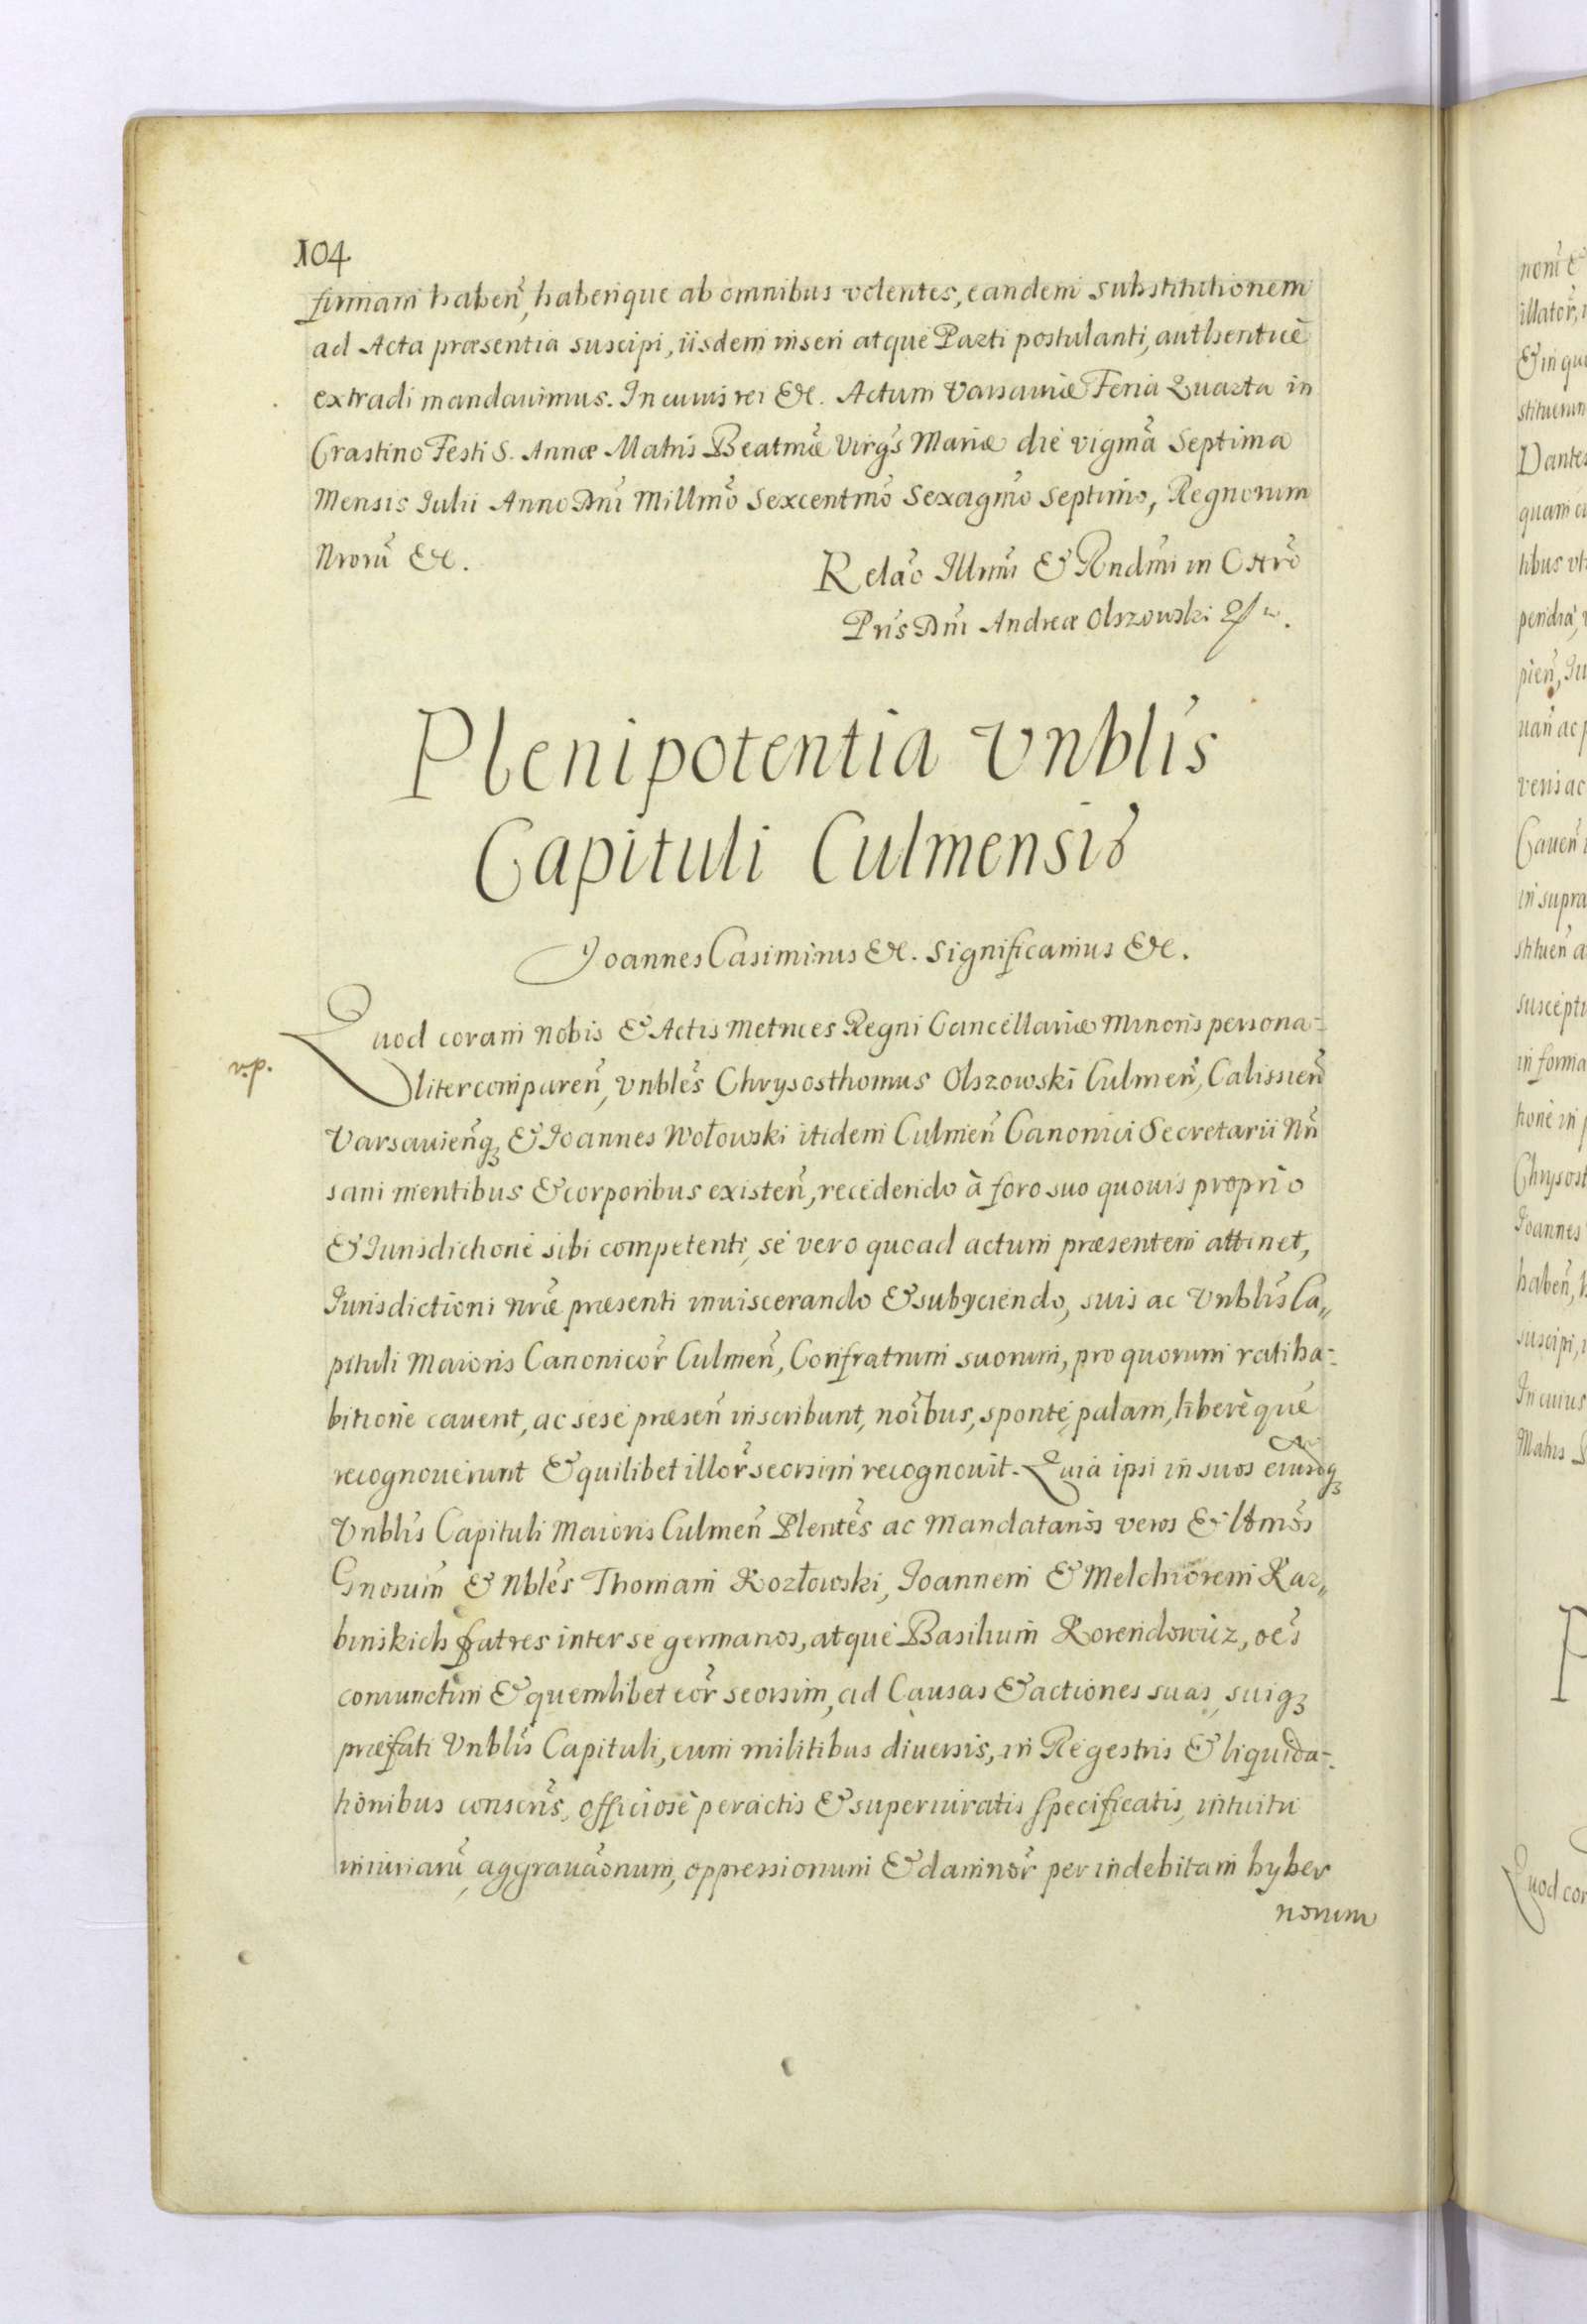 104
firmam haben̄, haberique ab omnibus volentes, eandem substitutionem
ad Acta præsentia suscipi, iisdem inseri atque Parti postulanti, authenticè
extradi mandavimus. In cuius rei &c. Actum Varsaviæ Feria Quarta in
Crastino Festi S. Annæ Matris Beatmǣ Virgs̄ Mariæ die vigmā Septima
Mensis Iulii Anno Dnī Millmō Sexcentmō Sexagmō Septimo, Regnorum
Nrorū &c.
Relaō Illrmī & Rndmī in Chrō
Pris̄ Dnī Andreæ Olszowski
Plenipotentia Vnblis̄
Capituli Culmensis
Joannes Casimirus &c. Significamus &c.
Quod coram nobis & Actis Metrices Regni Cancellariæ Minoris persona-
v.p.
liter comparen̄, Vnbles̄ Chrysosthomus Olszowski Culmen̄, Calissien̄
Varsavien̄q3 & Joannes Wołowski itidem Culmen̄ Canonici Secretarii Nrī
sani mentibus & corporibus existen̄, recedendo à foro suo quovis proprio
& Iurisdictione sibi competenti, se vero quoad actum præsentem attinet,
Jurisdictioni nrǣ præsenti inviscerando & subyciendo, suis ac Vnblis̄ Ca„
pituli Maioris Canonicor̄ Culmen̄, Confratrum suorum, pro quorum ratiha-
bitione cavent, ac sese præsen̄ inscribunt, noībus, sponte, palam, liberèque
recognoverunt & quilibet illor̄ seorsim recognovit. Quia ipsi in suos eiusdq3
Vnblis̄ Capituli Maioris Culmen̄ Plentes̄ ac Mandatarios veros & lttmos̄
Gnosum̄ & Nbles̄ Thomam Kozłowski, Joannem & Melchiorem Kar„
binskich fratres inter se germanos, atque Basilium Korendowicz, oes̄
coniunctim & quemlibet eor̄ seorsim, ad Causas & actiones suas, suiq3
præfati Vnblis̄ Capituli, cum militibus diversis, in Regestris & liquida-
tionibus conscris̄, officiose peractis & superiuratis specificatis, intuitu
iniuriarū, aggravaōnum, oppressionum & damnor̄ per indebitam hyber
norum